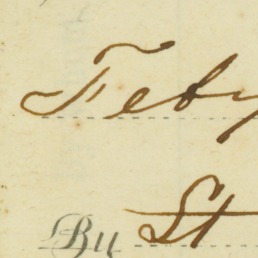 Feby
By St